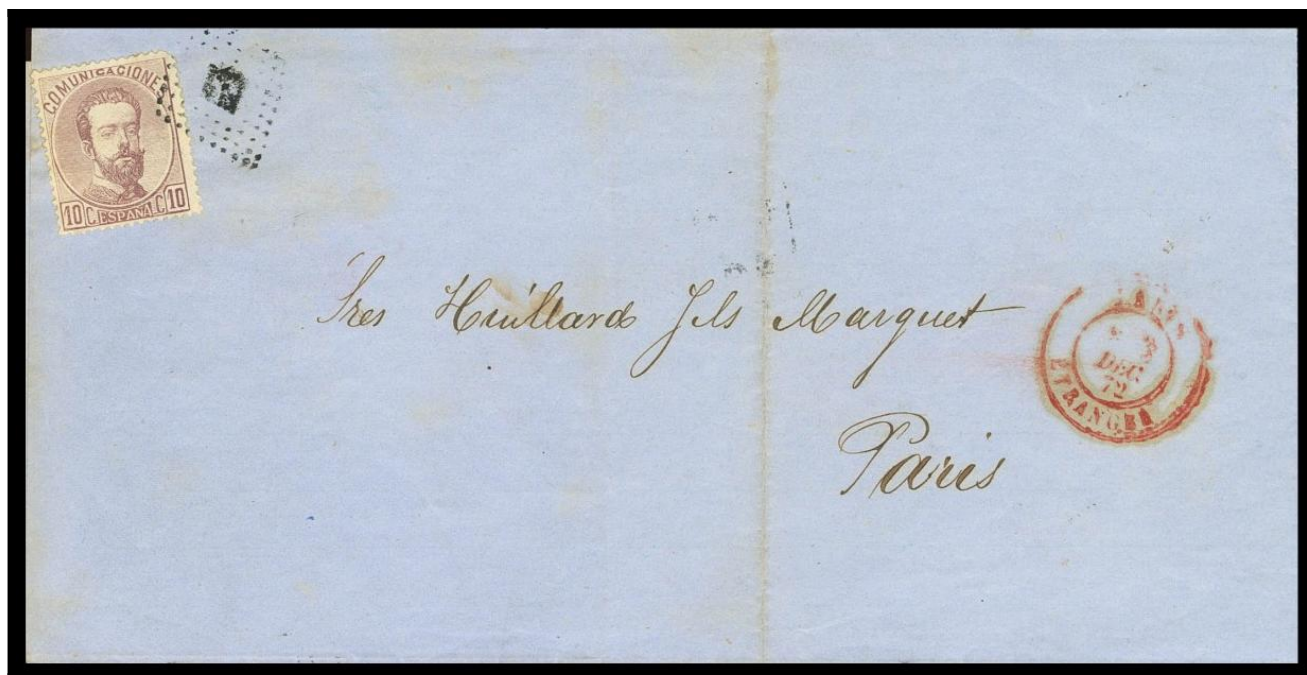 COMUNICACIONES
10 C. ESPAÑA C. 10
Sres Huillard fils Marquet
Paris
PARIS
3
DEC
72
ETRANGER